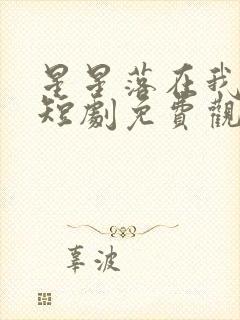 星星落在我
短劇免費觀
辜波